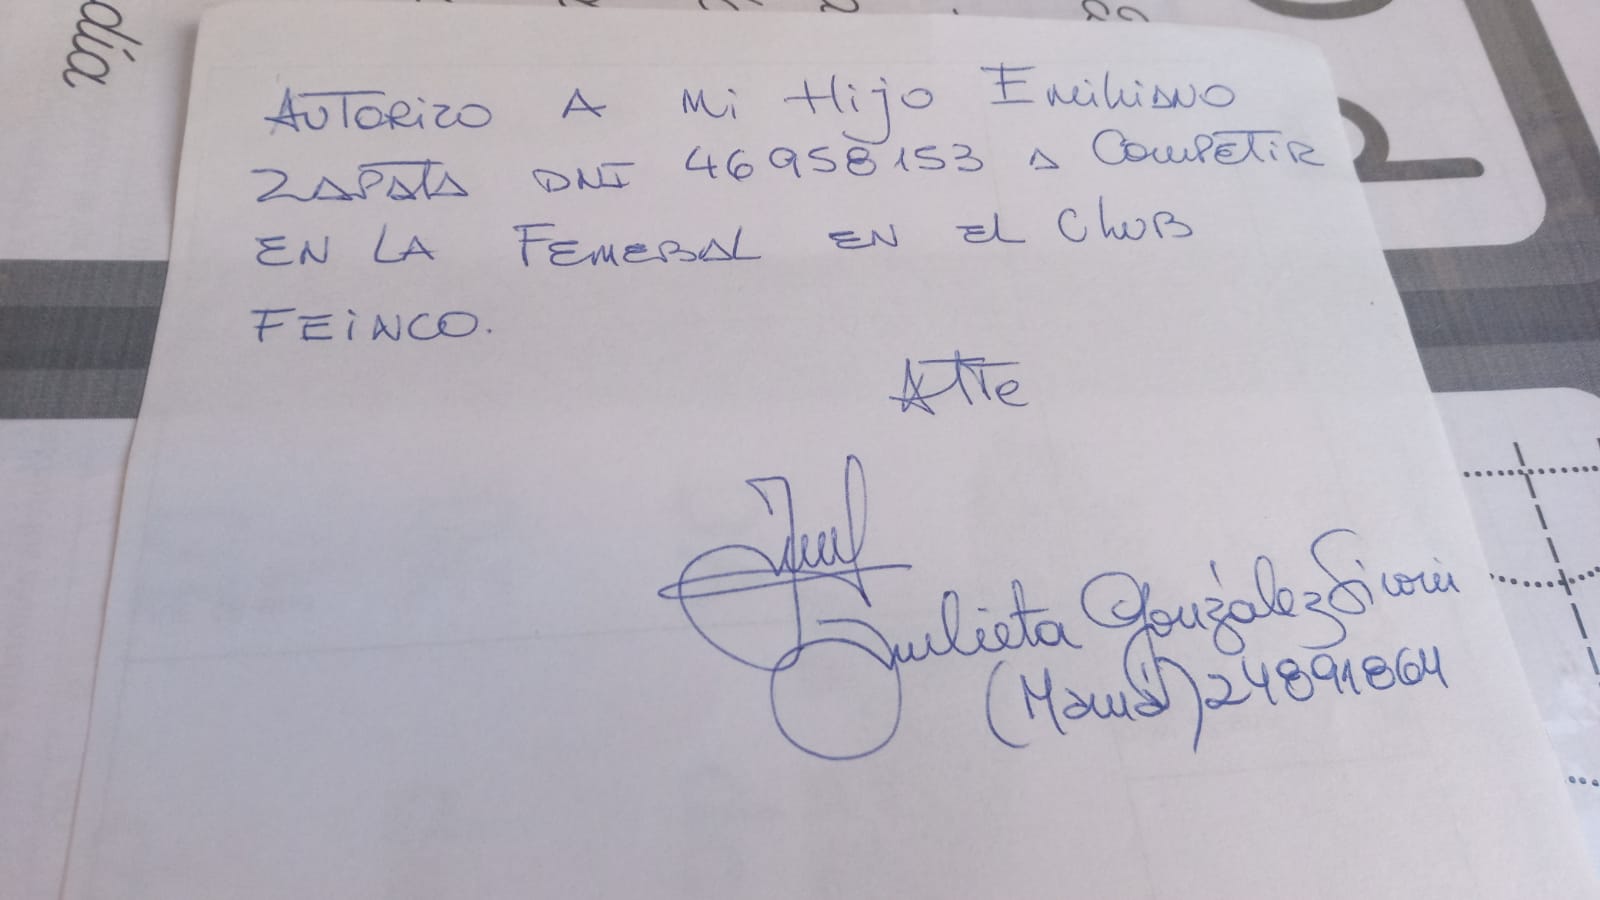 día
AUTORIZO A Mi Hijo EMiliANO
ZAPATA DNI 46958153 A COMPETIR
EN LA FEMEBAL EN EL CluB
FEiNCO.
ATTe
Julieta González Sironi
(Mamá) 24891864